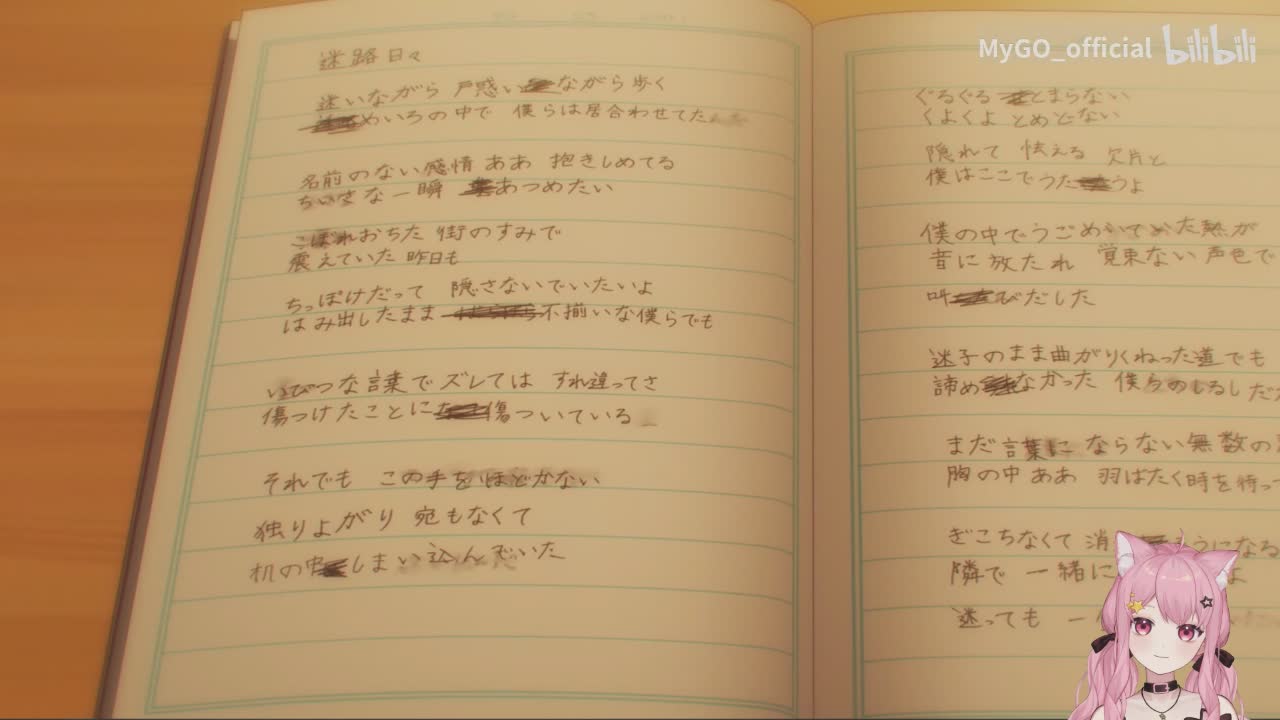 MyGO_official bilibili
迷路日々
迷いながら 戸惑いながら歩く
めいろの中で 僕らは居合わせてた
名前のない感情 ああ 抱きしめてる
ちいさな一瞬 あつめたい
こぼれおちた 街のすみで
震えていた 昨日も
ちっぽけだって 隠さないでいたいよ
はみ出したまま 不揃いな僕らでも
いびつな言葉で ズレては すれ違ってさ
傷つけたことに傷ついている
それでも この手をほどかない
独りよがり 宛もなくて
机の中しまい込んでいた
ぐるぐる とまらない
くよくよ とめどない
隠れて 怯える 欠片と
僕はここでうたうよ
僕の中でうごめいていた熱が
音に放たれ 覚束ない声色で
叫びだした
迷子のまま曲がりくねった道でも
諦めなかった 僕らのしるしだ
まだ言葉に ならない無数の
胸の中 ああ 羽ばたく時を待っ
ぎこちなくて 消 ようになる
隣で 一緒に よ
迷っても 一